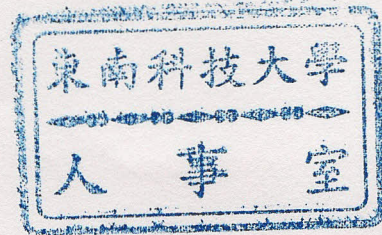 東南科技大學
人事室